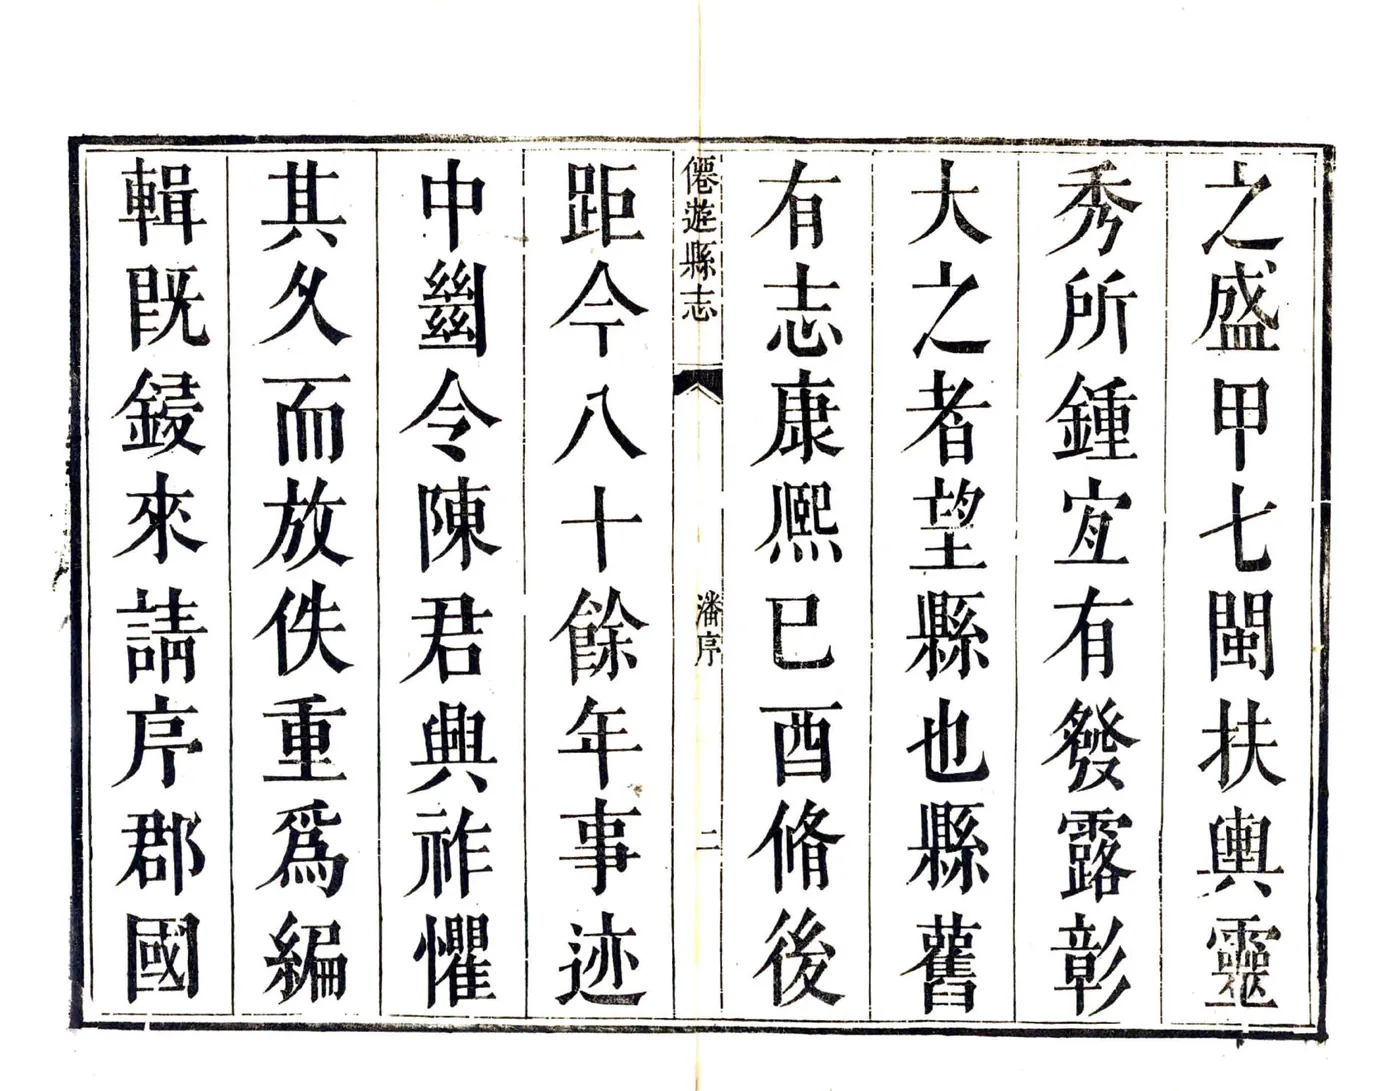 之盛甲七閩扶輿靈
秀所鍾宐有發露彰
大之者望縣也縣舊
有志康熈巳酉脩後
僊遊縣志
潘序
二
距今八十餘年事迹
中𢇍令陳君興祚懼
其久而放佚重爲編
輯既鋟來請序郡國